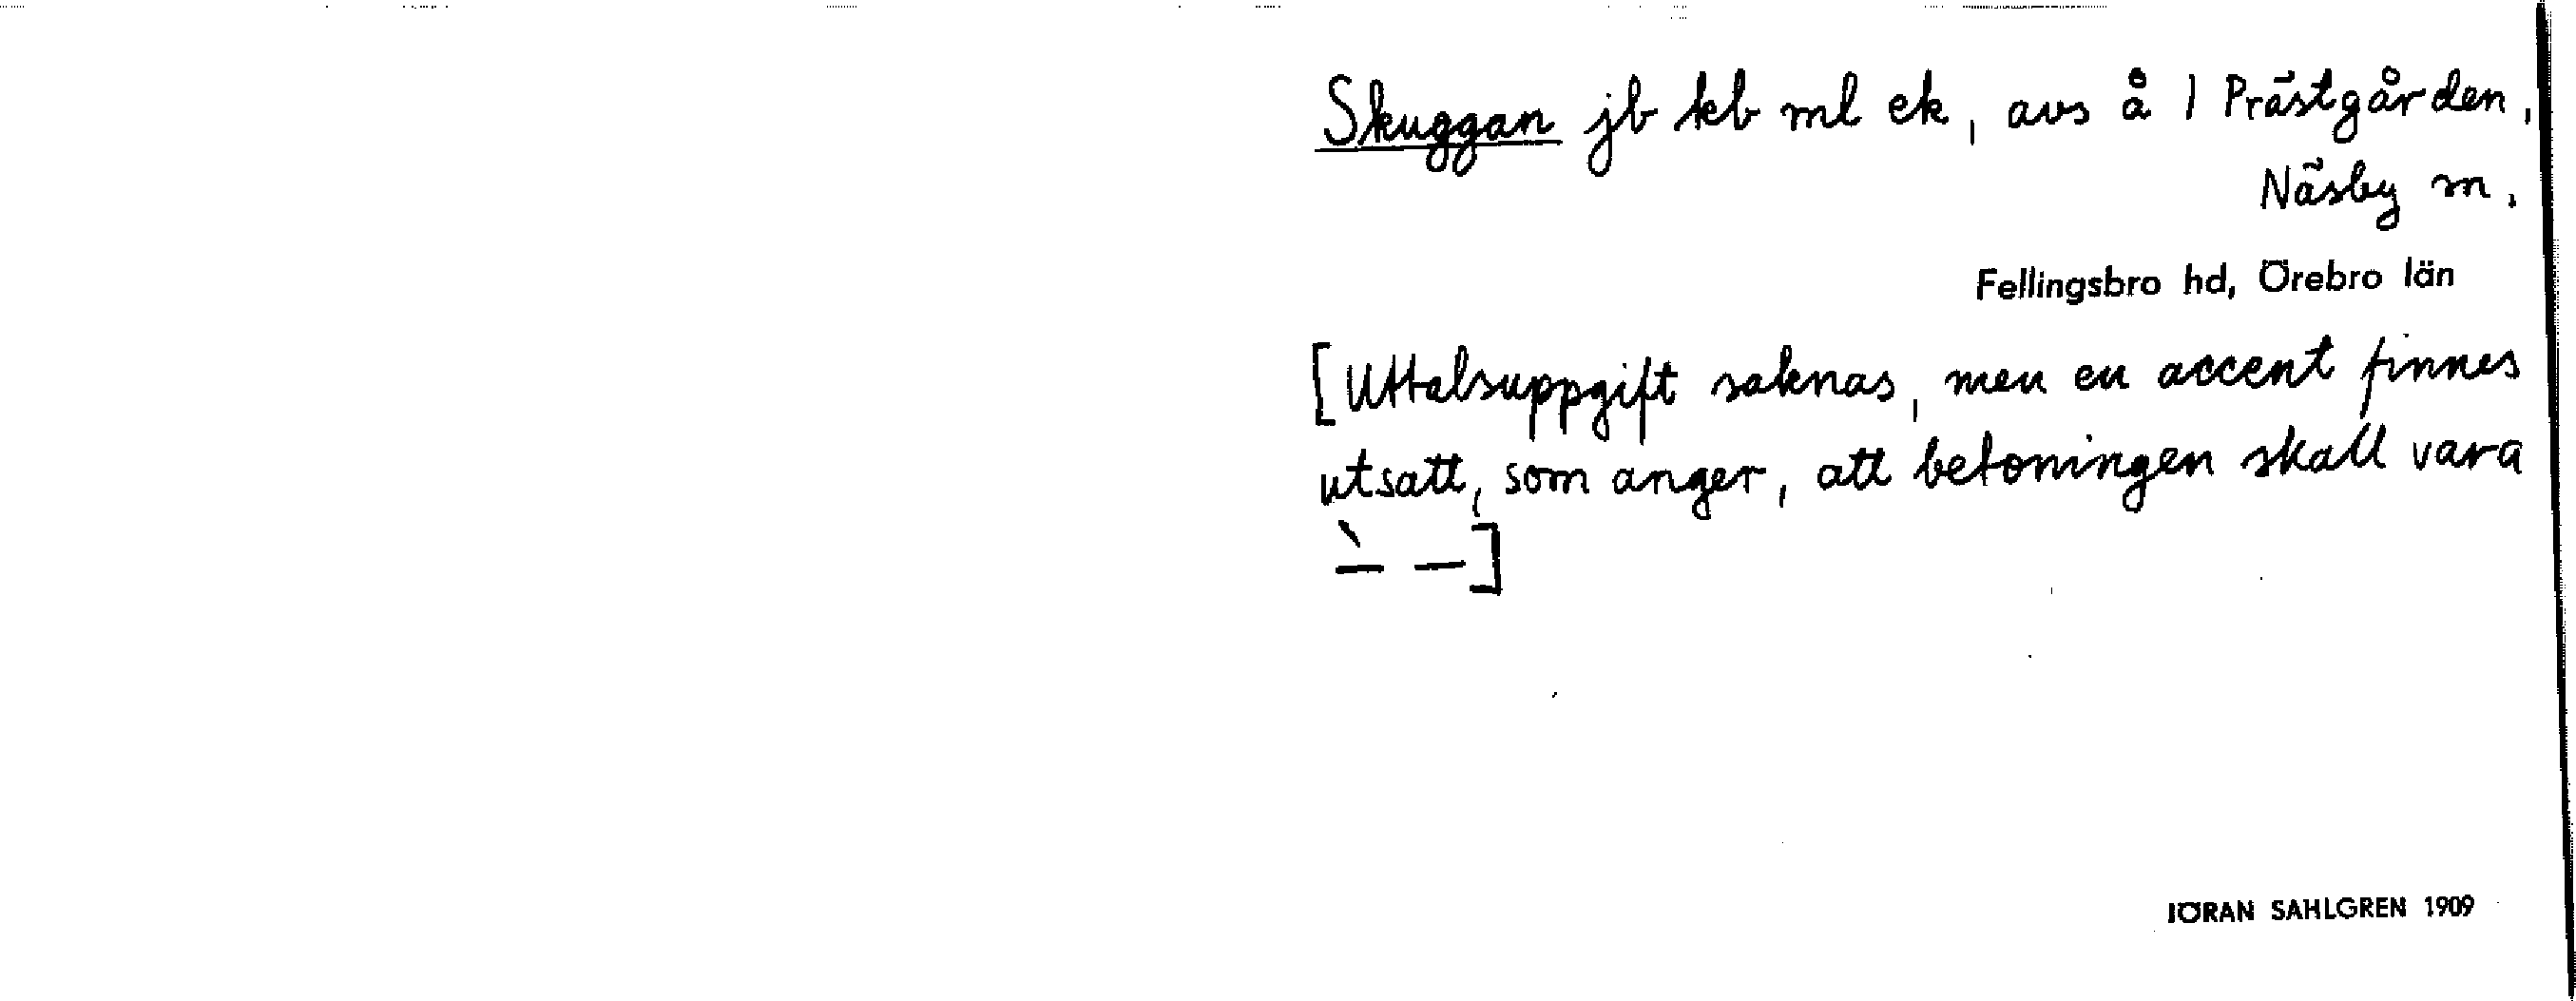 Skuggan jb kb ml ek, avs å 1 Prästgården,
Näsby sn.
Fellingsbro hd, Örebro län
[Uttalsuppgift saknas, men en accent finnes
utsatt, som anger, att betoningen skall vara
̀— —]
JÖRAN SAHLGREN 1909